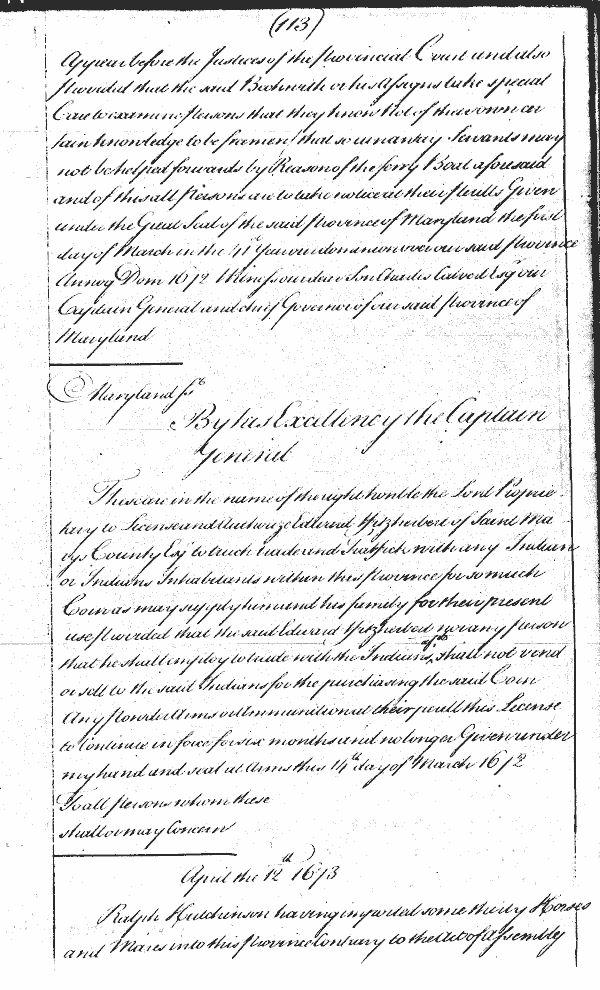 (113)
Appear before the Justices of the Provincial Court and also
Provided that the said Beckwith or his Assigns take special
Care to examine Persons that they know Not of their own cer
tain knowledge to be freemen that so runaway Servants may
not be helped forwards by Reason of the ferry Boat aforesaid
and of this all Persons are to take notice at their Perills Given
under the Great Seal of the said Province of Maryland the first
day of March in the 41st Year our dominion over our said Province
Annoq Dom 1672 Witness our dear Son Charles Calvert Esqr our
Captain General and chief Governor of our said Province of
Maryland
Maryland ss
By his Excellency the Captain
General
These are in the name of the right honble the Lord Proprie
tary to License and Authorize Edward Fitzherbert of Saint Ma
rys County Esqr to truck trade and Traffick with any Indian
or Indians Inhabitants within this Province for so much
Corn as may supply him and his family for their present
use Provided that the said Edward Fitzherbert nor any Person
that he shall employ to trade with the Indians shall not vend
or sell to the said Indians for the purchasing the said Corn
Any Powder Arms or Ammunition at their perill this License
to Continue in force for six months and no longer Given under
my hand and seal at Arms this 14th day of March 1672
To all Persons whom these
shall or may Concern
April the 12th 1673
Ralph Hutchinson having imported some thirty Horses
and Mares into this Province Contrary to the Act of Assembly